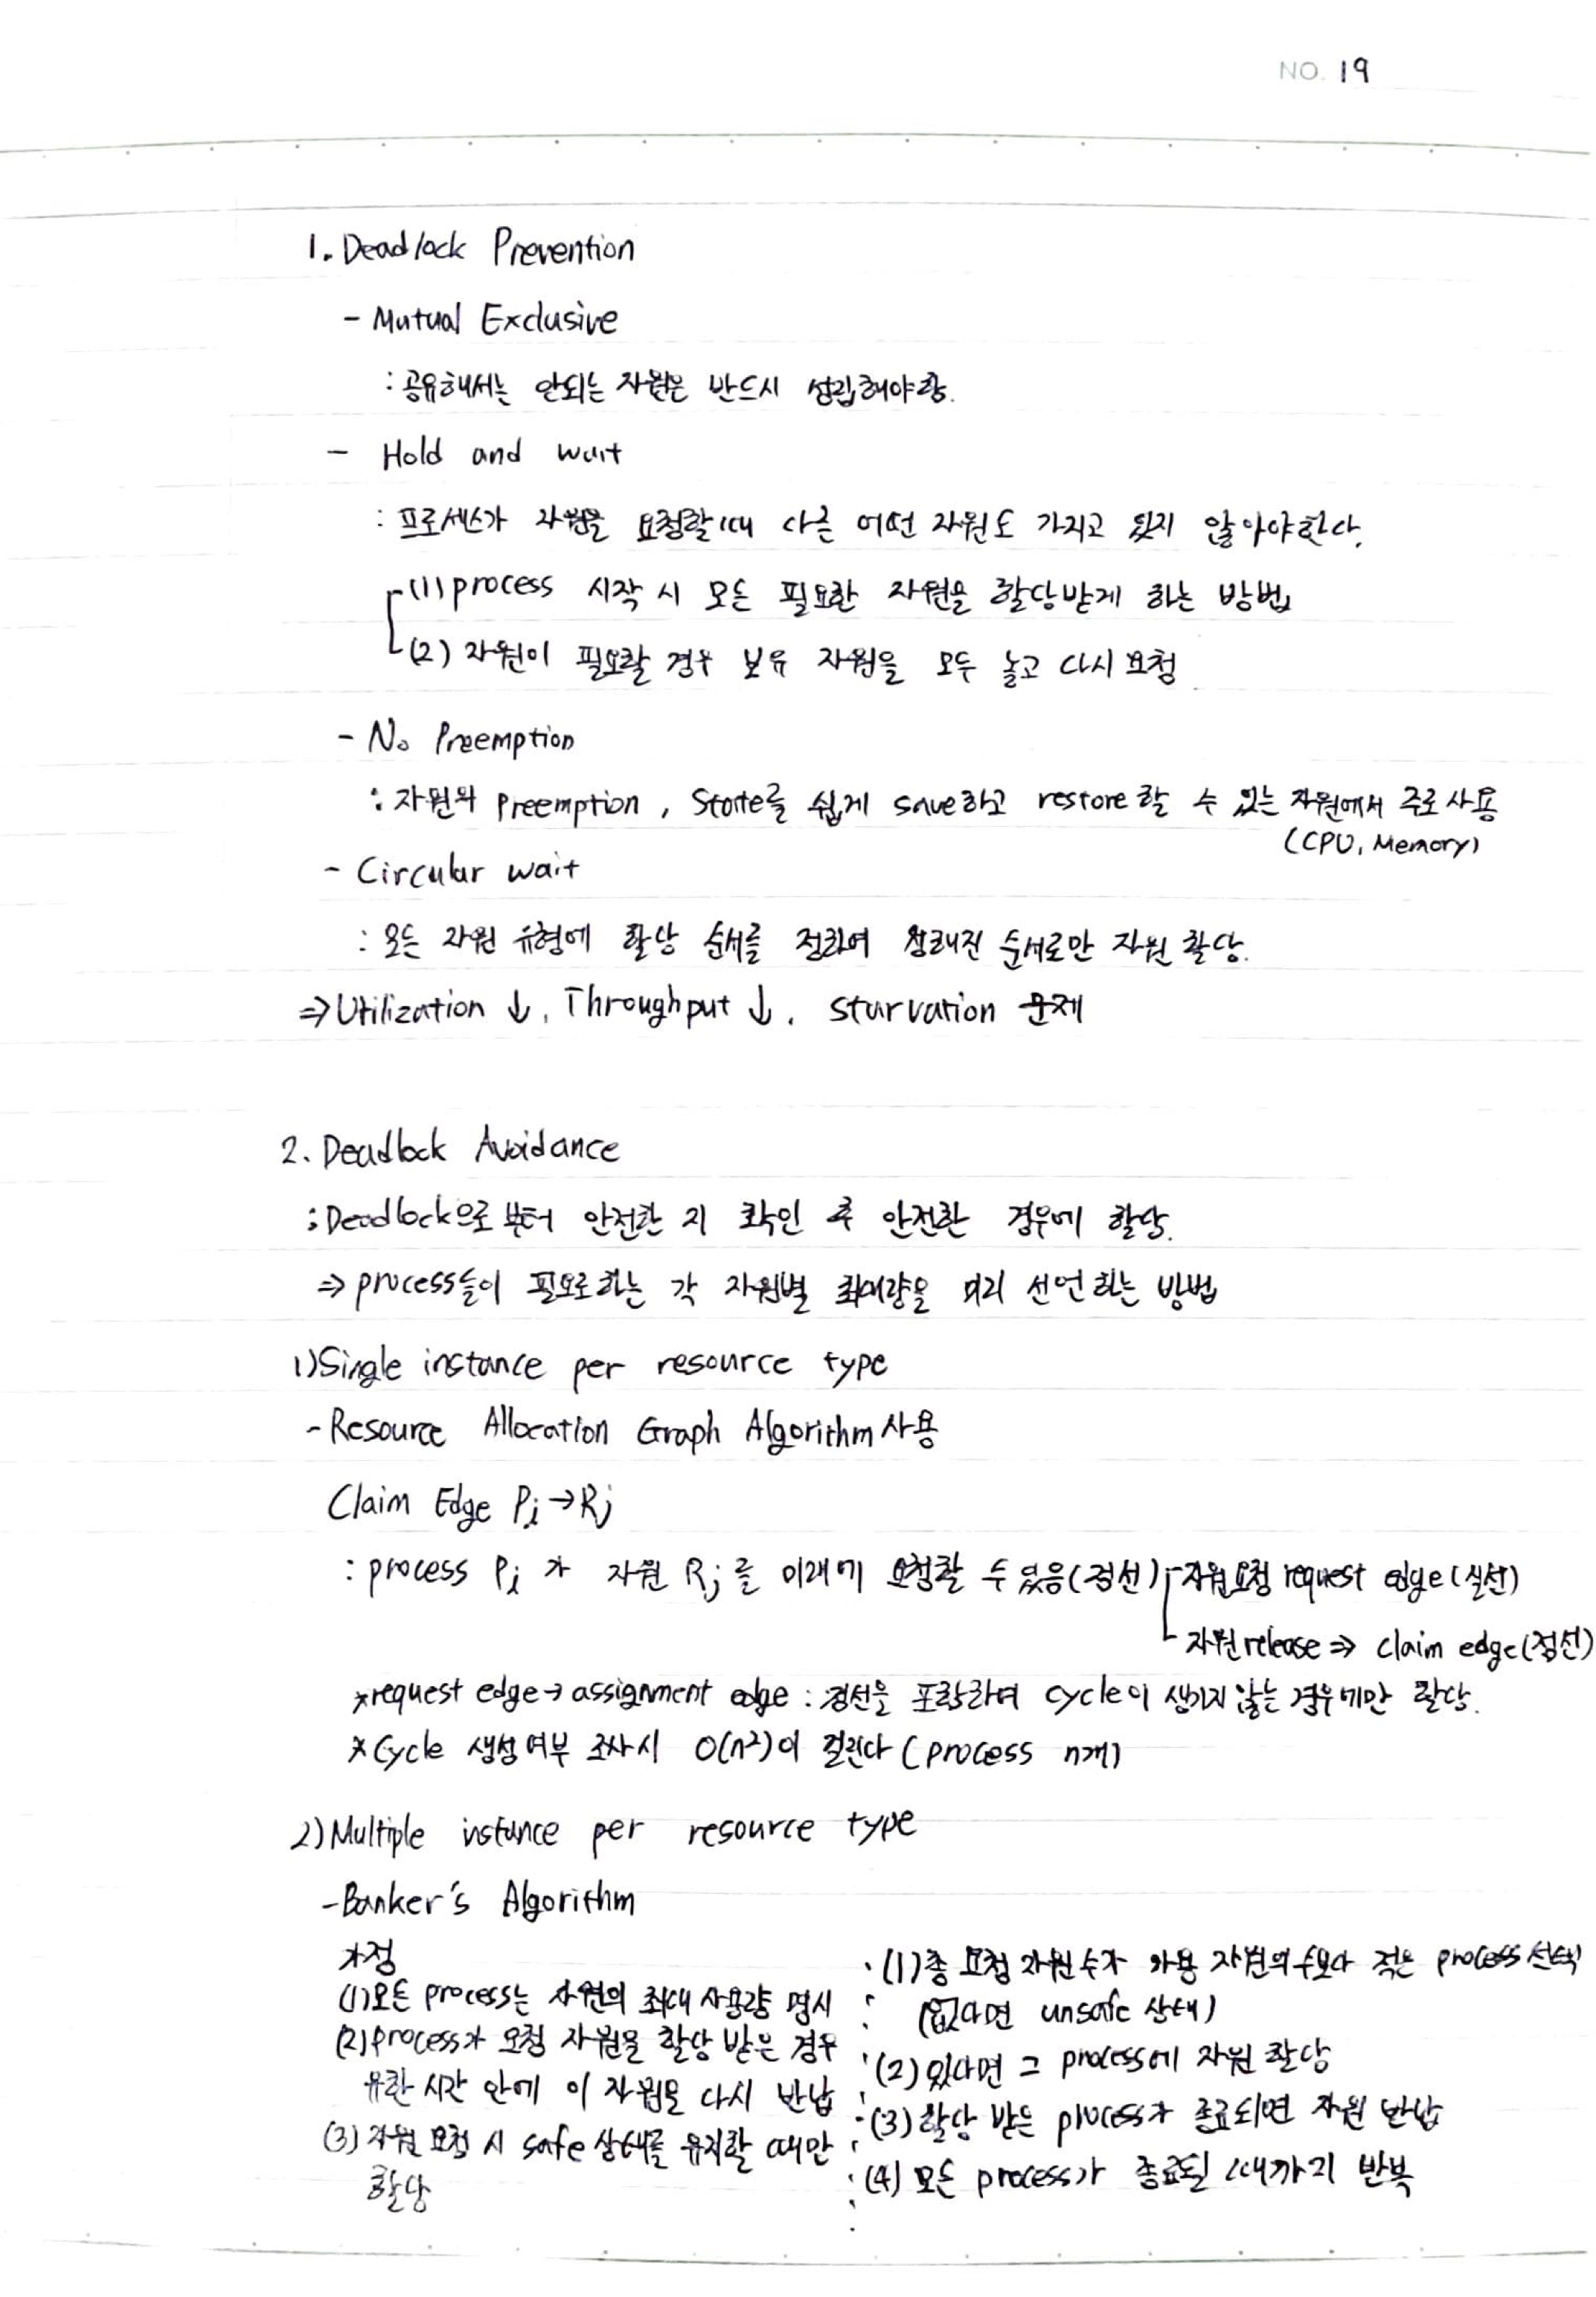 NO. 19
1. Deadlock Prevention
- Mutual Exclusive
: 공유해서는 안되는 자원은 반드시 성립해야함.
- Hold and wait
: 프로세스가 자원을 요청할때 다른 어떤 자원도 가지고 있지 않아야한다.
(1) process 시작 시 모든 필요한 자원을 할당받게 하는 방법
(2) 자원이 필요할 경우 보유 자원을 모두 놓고 다시 요청
- No Preemption
: 자원의 Preemption, State를 쉽게 save하고 restore할 수 있는 자원에서 주로 사용
(CPU, Memory)
- Circular wait
: 모든 자원 유형에 할당 순서를 정하여 정해진 순서로만 자원 할당.
⇒ Utilization ↓, Throughput ↓, starvation 문제
2. Deadlock Avoidance
: Deadlock으로 부터 안전한 지 확인 후 안전한 경우에 할당.
⇒ process들이 필요로하는 각 자원별 최대량을 미리 선언 하는 방법
1) Single instance per resource type
- Resource Allocation Graph Algorithm 사용
Claim Edge Pi → Rj
: process Pi 가 자원 Rj를 미래에 요청할 수 있음(점선) 자원요청 request edge(실선)
자원release ⇒ claim edge(점선)
*request edge → assignment edge : 점선을 포함하여 cycle이 생기지 않는 경우에만 할당.
* Cycle 생성여부 조사시 O(n²)이 걸린다 (process n개)
2) Multiple instance per resource type
- Banker's Algorithm
가정
(1) 모든 process는 자원의 최대 사용량 명시
(2) process가 요청 자원을 할당 받은 경우
유한 시간 안에 이 자원을 다시 반납
(3) 자원 요청 시 safe 상태를 유지할 때만
할당
(1) 총 요청 자원수가 가용 자원의 수보다 적은 process 선택
(없다면 unsafe 상태)
(2) 있다면 그 process에 자원 할당
(3) 할당 받은 process가 종료되면 자원 반납
(4) 모든 process가 종료될 때까지 반복